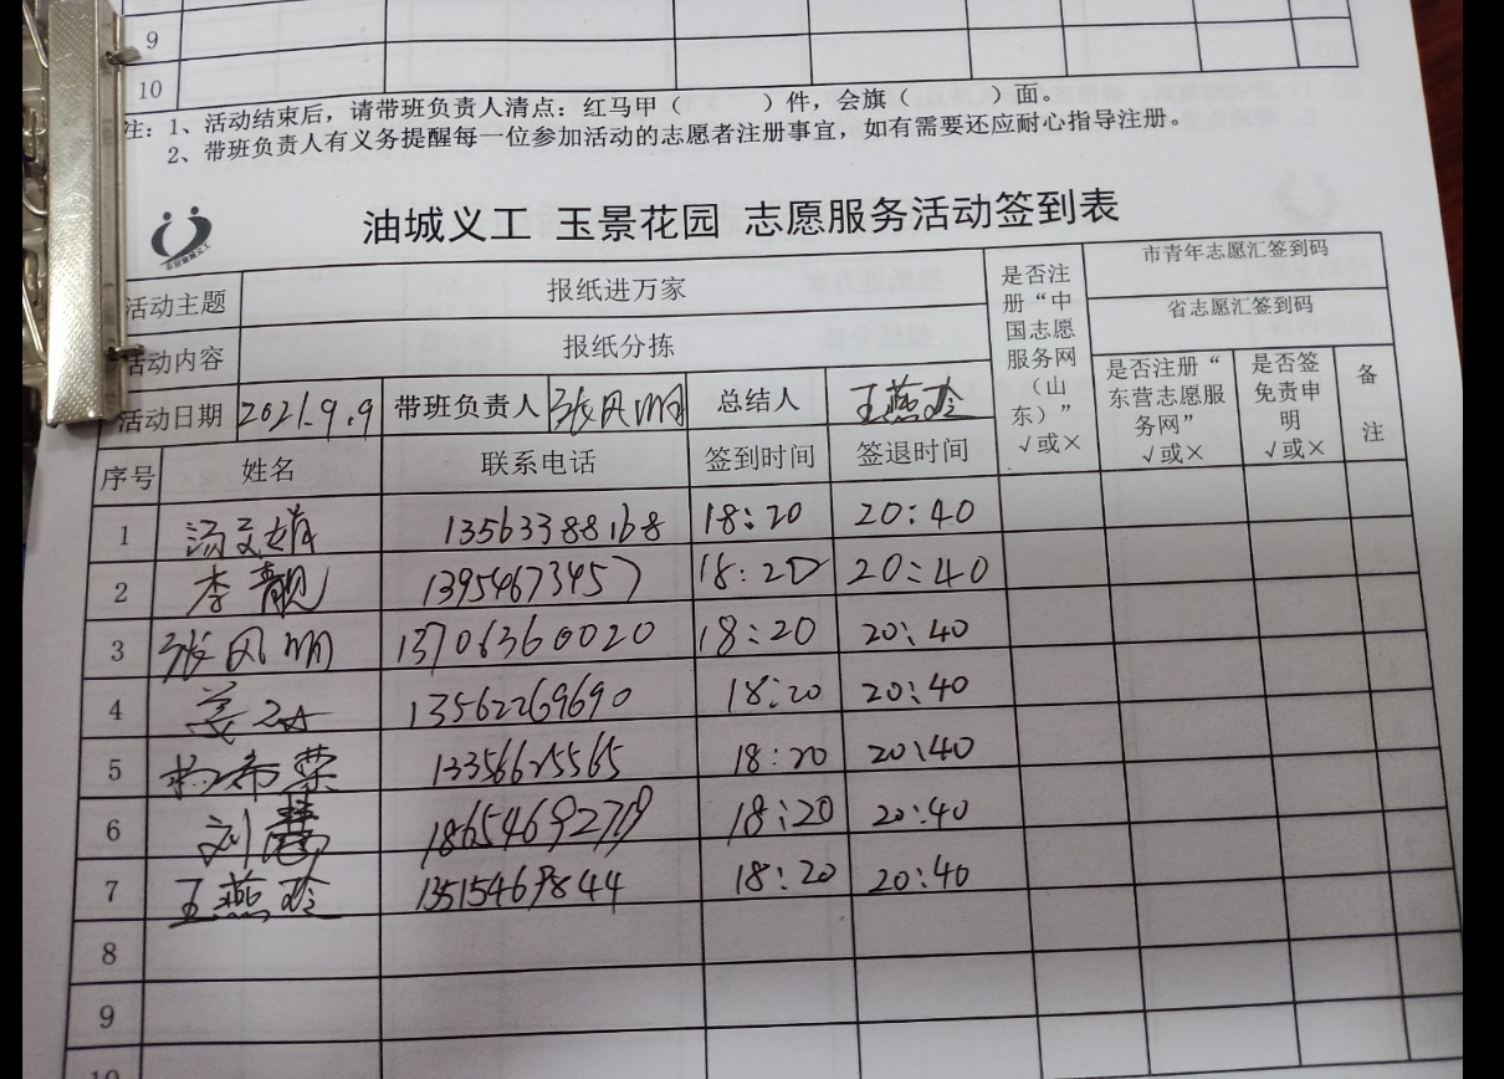 9
10
注：1、活动结束后，请带班负责人清点：红马甲（ ）件，会旗（ ）面。
2、带班负责人有义务提醒每一位参加活动的志愿者注册事宜，如有需要还应耐心指导注册。
油城义工 玉景花园 志愿服务活动签到表
活动主题 报纸进万家 是否注册“中国志愿服务网（山东）” √或× 市青年志愿汇签到码
省志愿汇签到码
活动内容 报纸分拣 是否注册“东营志愿服务网” √或× 是否签免责申明 √或× 备注
活动日期 2021.9.9 带班负责人 张风明 总结人 王燕玲
序号 姓名 联系电话 签到时间 签退时间
1 汤文娟 13563388168 18:20 20:40
2 李靓 13954673457 18:20 20:40
3 张风明 13706360020 18:20 20:40
4 姜 13562269690 18:20 20:40
5 杨希荣 13356625565 18:20 20:40
6 刘慧 18:20 20:40
7 王燕玲 18:20 20:40
8
9
10